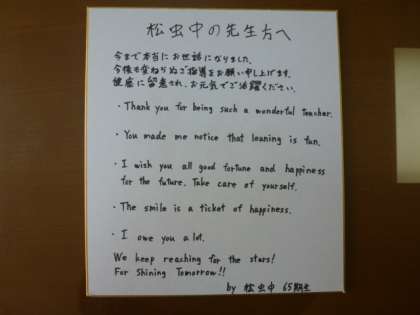 松虫中の先生方へ
今まで本当にお世話になりました。
今後も変わらぬご指導をお願い申し上げます。
健康に留意され、お元気でご活躍ください。
・Thank you for being such a wonderful teacher.
・You made me notice that leaning is fun.
・I wish you all good fortune and happiness
for the future. Take care of yourself.
・The smile is a ticket of happiness.
・I owe you a lot.
We keep reaching for the stars!
For Shining Tomorrow!!
by 松虫中 65期生